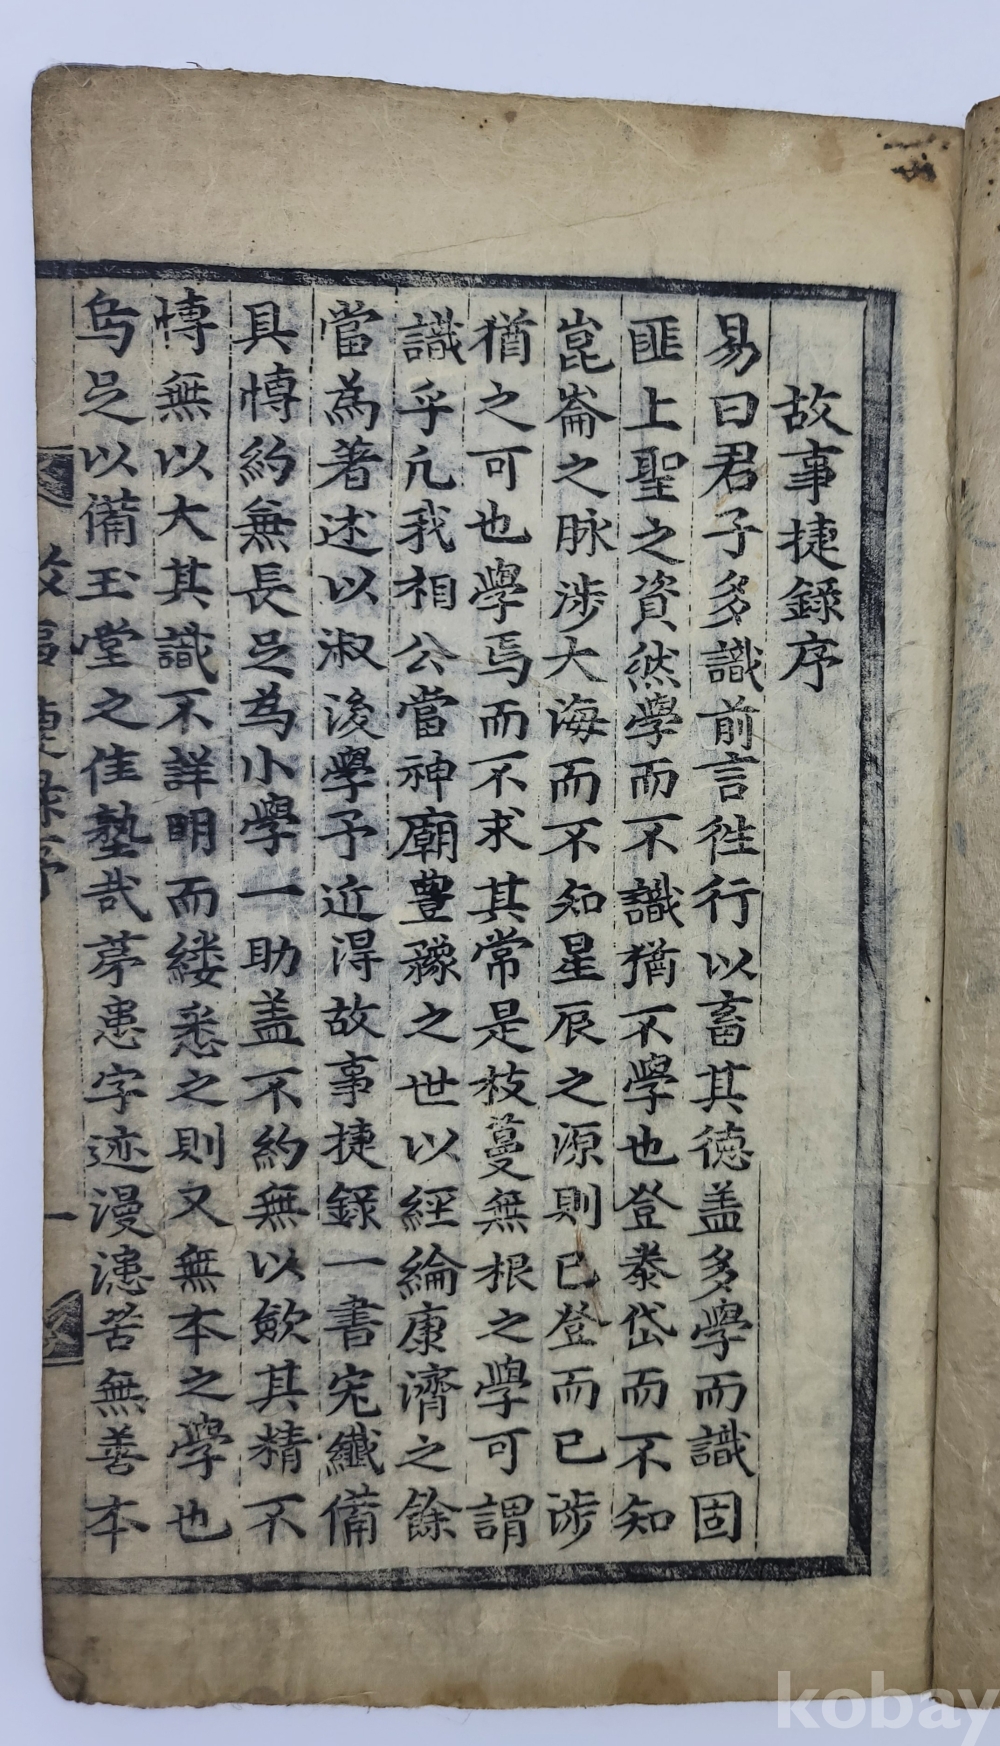 故事捷錄序
易曰君子多識前言徃行以畜其德盖多學而識固
匪上聖之資然學而不識猶不學也登泰岱而不知
崑崙之脉涉大海而不知星辰之源則已登而已涉
猶之可也學焉而不求其常是枝蔓無根之學可謂
識乎凢我相公當神廟豊豫之世以經綸康濟之餘
當為著述以淑後學予近得故事捷錄一書宂纖備
具博約無長足為小學一助盖不約無以歛其精不
博無以大其識不詳明而縷悉之則又無本之學也
烏足以備玉堂之佳塾哉苐患字迹漫漶苦無善本
故事捷錄序 一
kobay